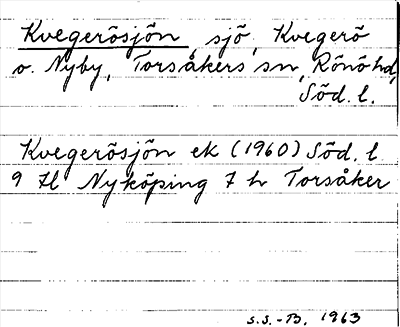 Kvegerösjön, sjö, Kvegerö
o. Nyby, Torsåkers sn, Rönö hd,
Söd. l.
Kvegerösjön ek (1960) Söd. l.
9 H Nyköping 7 h Torsåker
S.S.-B. 1963